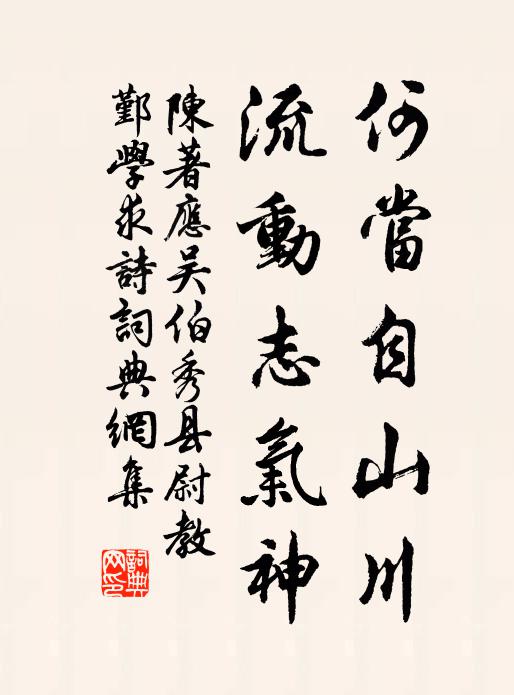 何當自山川
流動志氣神
陳著應吴伯秀县尉教
鄞學求詩詞典網集
詞典網印